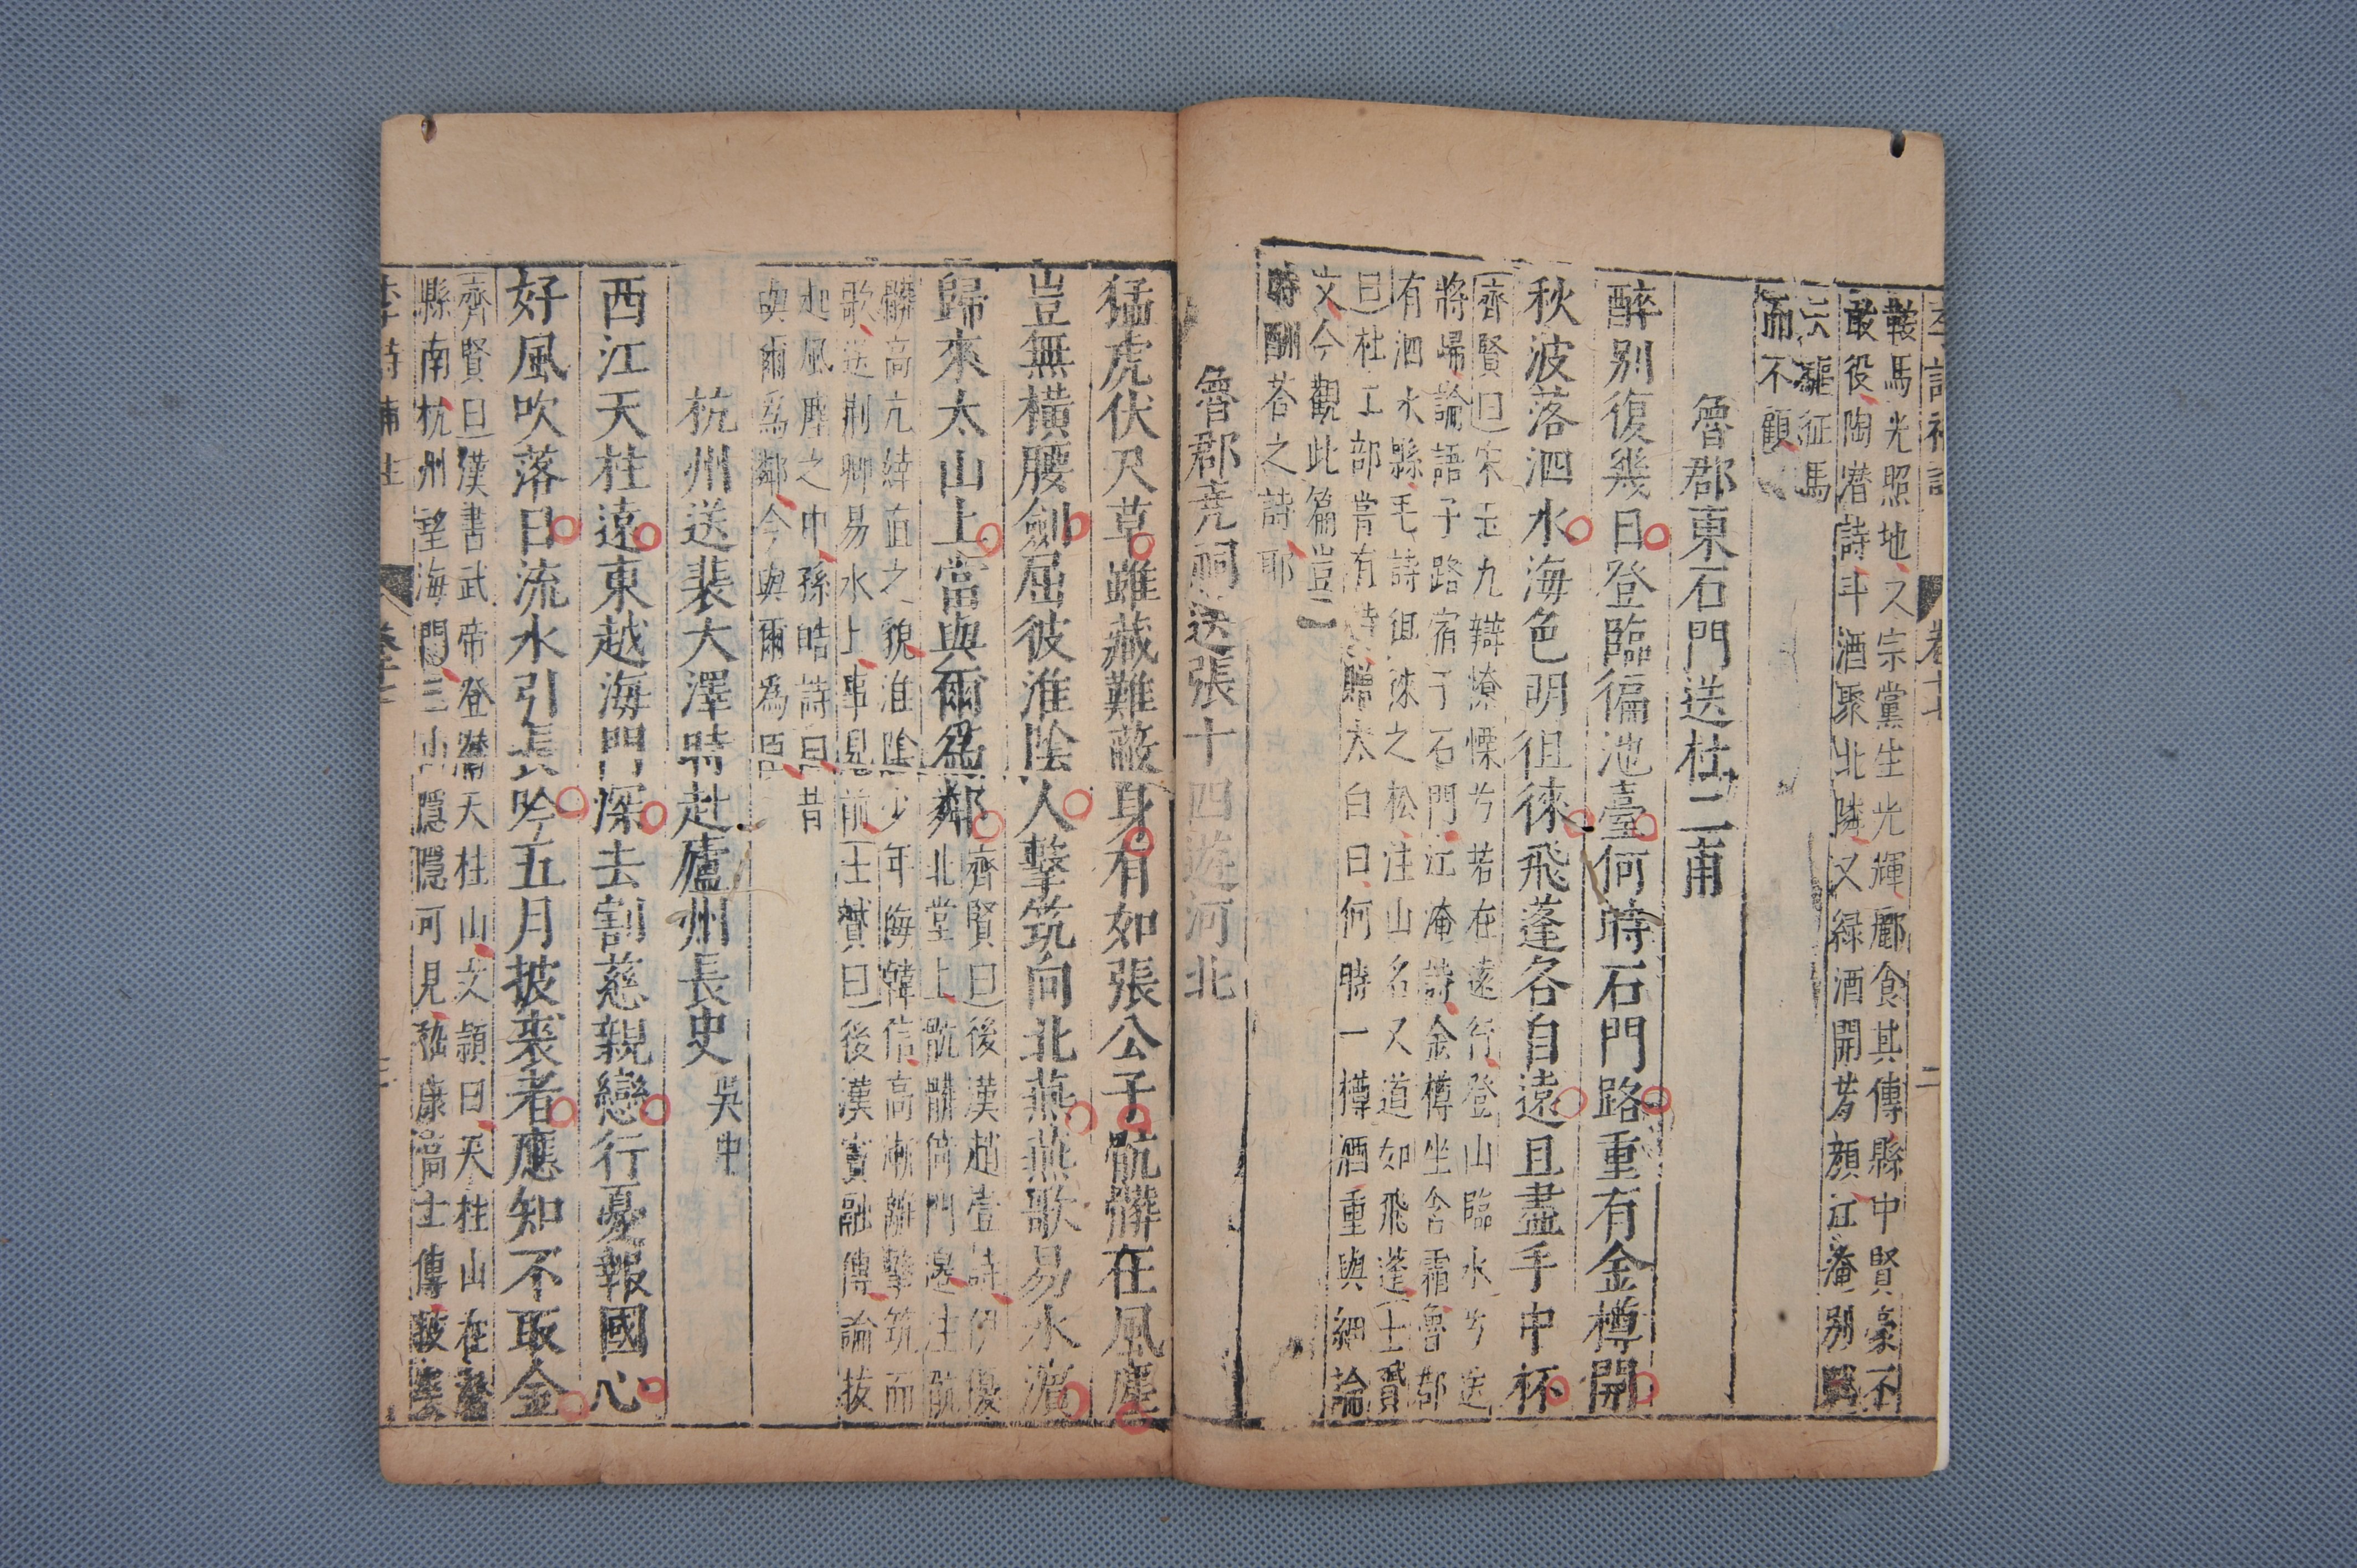 鞍馬光照地又宗黨生光輝郿食其傳縣中賢豪不
敢役陶潛詩斗酒聚北隣又緑酒開芳顏江淹別
云驅征馬
而不顧
魯郡東石門送杜二甫
醉別復幾日登臨徧池臺何時石門路重有金樽開
秋波落泗水海色明徂徠飛蓬各自遠且盡手中杯
齊賢曰宋玉九辯憭慄兮若在遠行登山臨水兮送
將歸論語子路宿于石門江淹詩金樽坐含霜魯郡
有泗水縣毛詩徂徠之松注山名又道如飛蓬士贇
曰杜工部嘗有詩贈太白曰何時一樽酒重與細論
文今觀此篇豈二
時酬荅之詩耶
魯郡尭祠送張十四遊河北
猛虎伏尺草雖藏難蔽身有如張公子骯髒在風塵
豈無横腰劍屈彼淮陰人擊筑向北燕燕歌易水濱
歸來太山上當與爾爲鄰
齊賢曰後漢趙壹詩伊優
北堂上骯髒倚門邊注骯
髒高亢婞直之貌淮陰少年侮韓信高漸離擊筑而
歌送荆卿易水上事見前士贇曰後漢竇融傳論拔
起風塵之中孫皓詩曰昔
與爾爲鄰今與爾爲臣
杭州送裴大澤時赴廬州長史
吳中
西江天柱遠東越海門深去割慈親戀行憂報國心
好風吹落日流水引長吟五月披裘者應知不取金
齊賢曰漢書武帝登灊天柱山文頴曰天柱山在灊
縣南杭州望海門三山隱隱可見嵇康高士傳披裘